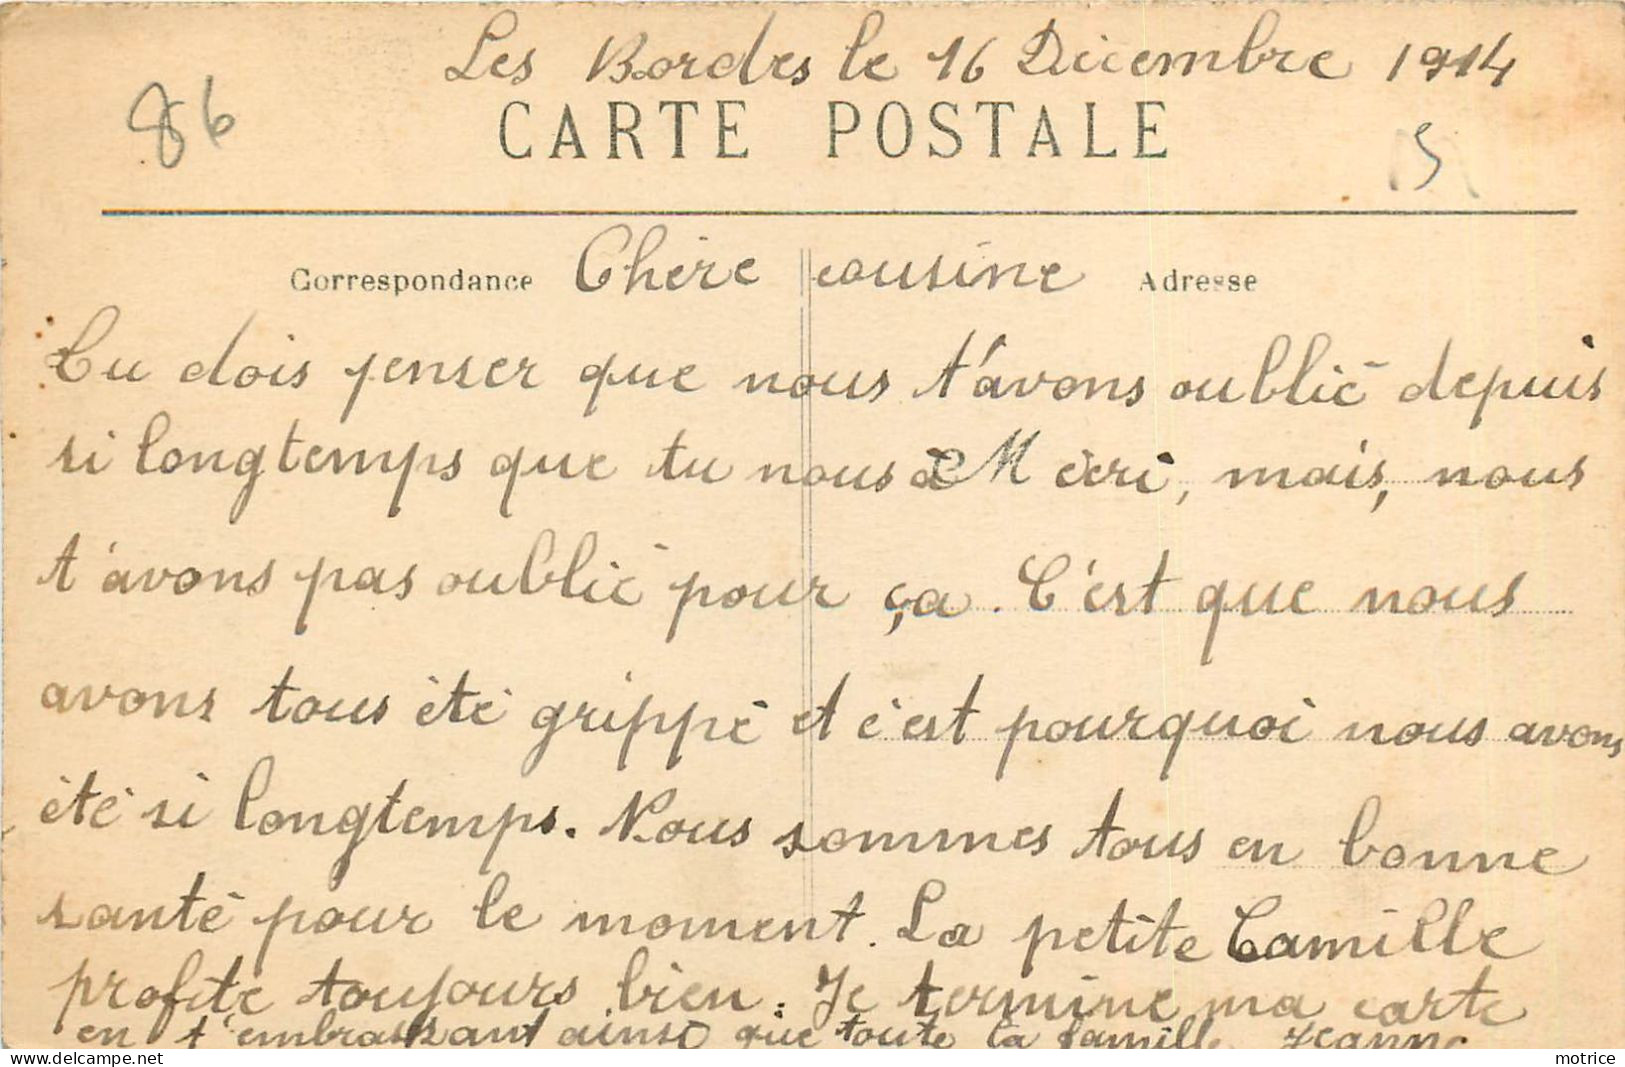 Les Bordes le 16 Décembre 1914
86
CARTE POSTALE
5
Correspondance Chère cousine Adresse
Tu dois penser que nous t'avons oublié depuis
si longtemps que tu nous a écri, mais, nous
t'avons pas oublié pour ça. C'est que nous
avons tous été grippé et c'est pourquoi nous avons
été si longtemps. Nous sommes tous en bonne
santé pour le moment. La petite Camille
profite toujours bien. Je termine ma carte
en t'embrassant ainsi que toute la famille Jeanne
motrice